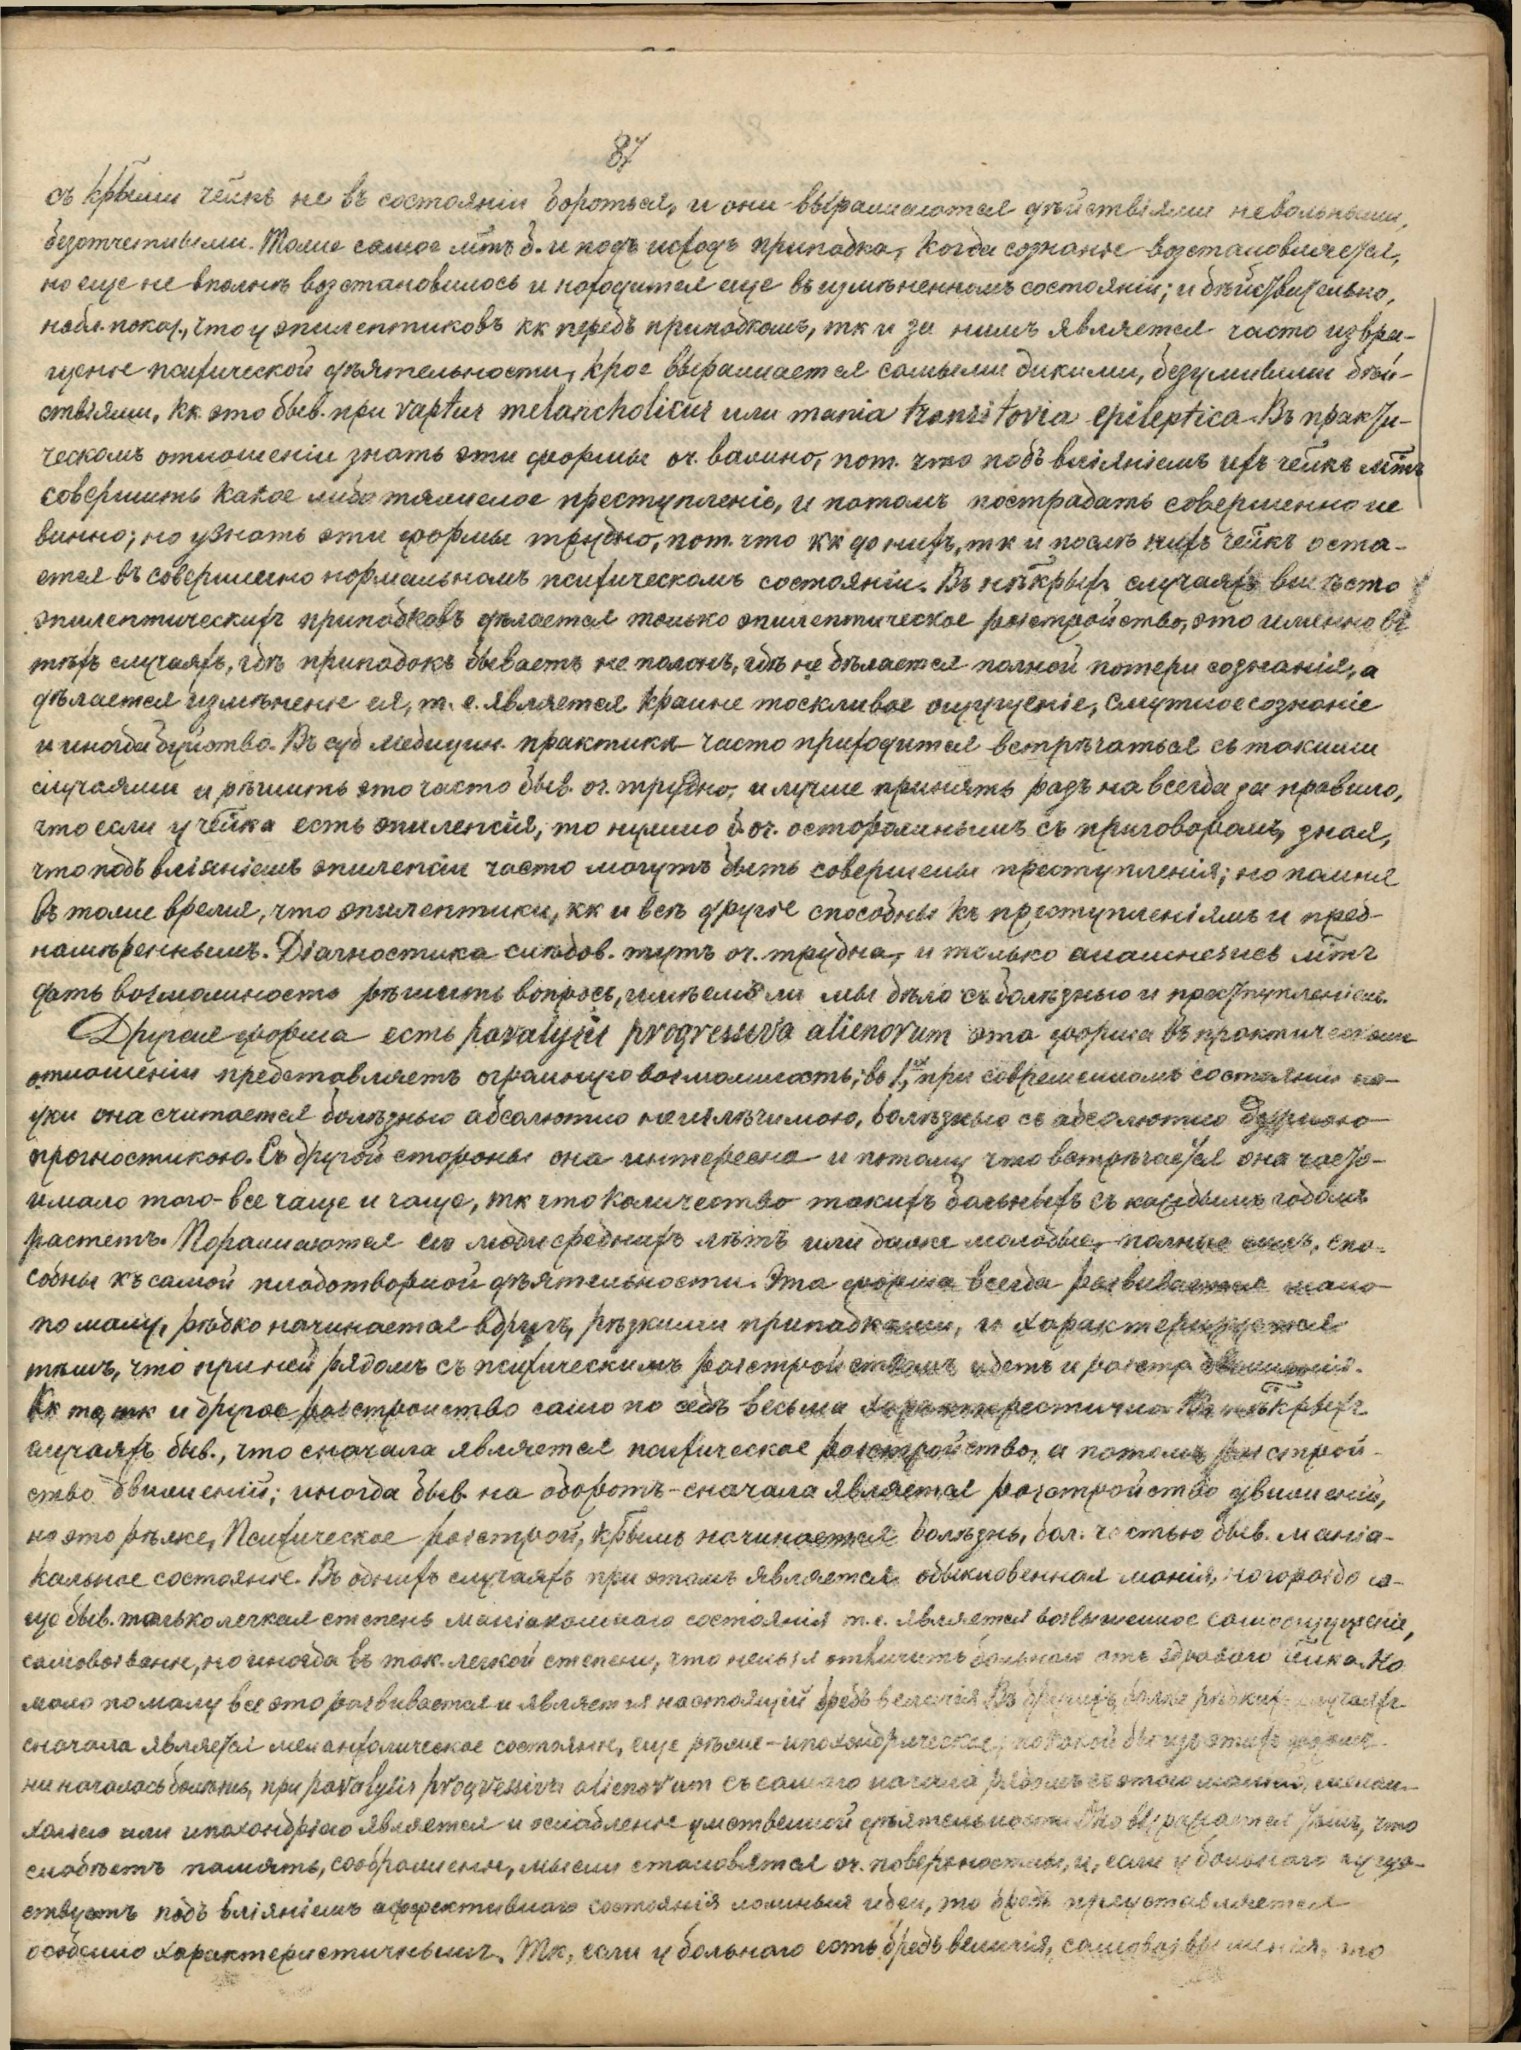 87
съ крыми челкъ не въ состоянiи бороться, и они выражаются дѣйствiями невольными,
безотчетными. Тоже самое мтъ б. и подъ исходъ припадка, когда сознанiе возстановляется,
но еще не вполнѣ возстановилось и находится еще въ измѣненномъ состоянiи; и дѣйствительно,
набл. показ., что у эпилептиковъ кк передъ припадкомъ, тк и за нимъ является часто извра-
щенiе психической дѣятельности, крое выражается самыми дикими, безумными дѣй-
ствiями, кк это быв. при raptus melancholicus или mania transitoria epileptica. Въ практи-
ческомъ отношенiи знать эти формы оч. важно, пот. что подъ влiянiемъ ихъ челкъ мтъ
совершить какое либо тяжелое преступленiе, и потомъ пострадать совершенно не
винно; но узнать эти формы трудно, пот. что кк до нихъ, тк и послѣ нихъ челкъ оста-
ется въ совершенно нормальномъ психическомъ состоянiи. Въ нѣкрыхъ случаяхъ вмѣсто
эпилептическихъ припадковъ дѣлается только эпилептическое разстройство, это именно въ
тѣхъ случаяхъ, гдѣ припадокъ бываетъ не полонъ, гдѣ не дѣлается полной потери сознанiя, а
дѣлается измѣненiе ея, т. е. является крайне тоскливое ощущенiе, смутное сознанiе
и иногда буйство. Въ суд. медицин. практикѣ часто приходится встрѣчаться съ такими
случаями и рѣшить это часто быв. оч. трудно, и лучше принять разъ на всегда за правило,
что если у челка есть эпилепсiя, то нужно б. оч. осторожнымъ съ приговоромъ, зная,
что подъ влiянiемъ эпилепсiи часто могутъ быть совершены преступленiя; но помня
въ тоже время, что эпилептики, кк и всѣ другiе способны къ преступленiямъ и пред-
намѣреннымъ. Дiагностика слѣдов. тутъ оч. трудна, и только анамнезисъ мтъ
дать возможность рѣшить вопросъ, имѣемъ ли мы дѣло съ болѣзнью и преступленiемъ.
Другая форма есть paralysis progressiva alienorum эта форма въ практическомъ
отношенiи представляетъ огромную возможность; въ 1, при современномъ состоянiи на-
уки она считается болѣзнью абсолютно неизлѣчимою, болѣзнью съ абсолютно дурною
прогностикою. Съ другой стороны она интересна и потому что встрѣчается она часто-
и мало того - все чаще и чаще, тк что количество такихъ больныхъ съ каждымъ годомъ
растетъ. Поражаются ею люди среднихъ лѣтъ или даже молодые, полные силъ, спо-
собные къ самой плодотворной дѣятельности. Эта форма всегда развивается мало
по малу, рѣдко начинается вдругъ, рѣзкими припадками, и характеризуется
тѣмъ, что при ней рядомъ съ психическимъ разстройствомъ идетъ и разстр. движенiй.
Кк то, тк и другое разстройство само по себѣ весьма характеристично. Въ нѣкрыхъ
случаяхъ быв., что сначала является психическое разстройство, а потомъ разстрой-
ство движенiй; иногда быв. на оборотъ - сначала является разстройство движенiй,
но это рѣже. Психическое разстрой., крымъ начинается болѣзнь, бол. частью быв. манiа-
кальное состоянiе. Въ однихъ случаяхъ при этомъ является обыкновенная манiя, но гораздо ча-
ще быв. только легкая степень манiакальнаго состоянiя т. е. является возвышенное самоощущенiе,
самовозванн, но иногда въ так. легкой степени, что нельзя отличить больного отъ здраваго челка. Но
мало по малу все это развивается и является настоящiй бредъ величiя. Въ другихъ, болѣе рѣдкихъ случаяхъ
сначала является меланхолическое состоянiе, еще рѣже - ипохондрическое, но какой бы изъ этихъ формъ
ни началась болѣзнь, при paralysis progressiva alienorum съ самаго начала рядомъ съ этою манiей, мелан-
холiею или ипохондрiею является и ослабленiе умственной дѣятельности. Это выражается тѣмъ, что
слабѣетъ память, соображенiе, мысли становятся оч. поверхностны, и, если у больнаго суще-
ствуетъ подъ влiянiемъ аффективнаго состоянiя ложныя идеи, то бредъ представляется
особенно характеристичнымъ. Тк, если у больнаго есть бредъ величiя, то